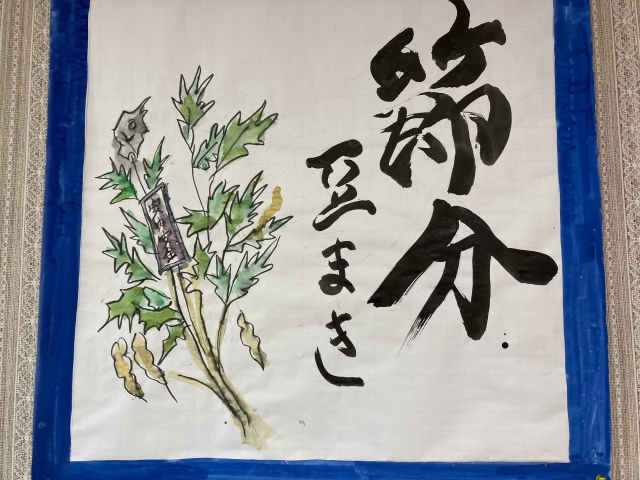 節分
豆まき